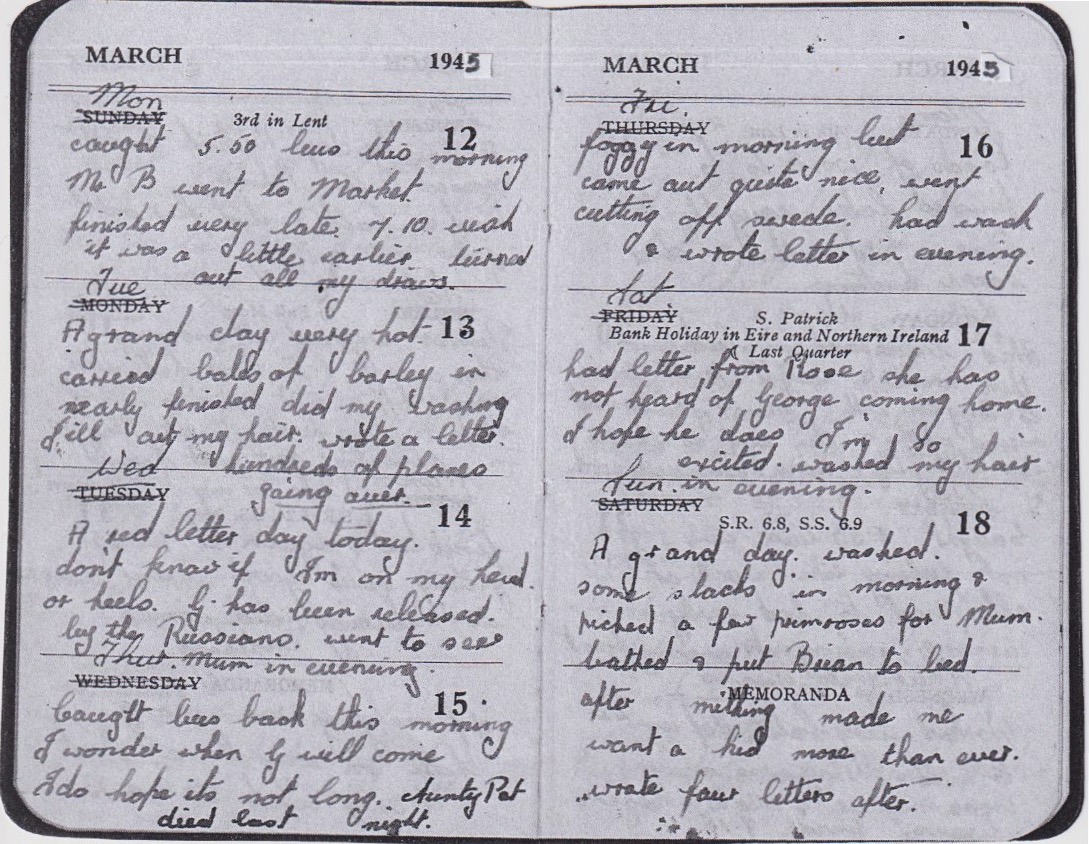 MARCH 1945
Mon
SUNDAY 3rd in Lent 12
caught 5.50 bus this morning
Mr B went to Market.
finished very late. 7.10. wish
it was a little earlier turned
out all my draws.
Tue
MONDAY
A grand day very hot 13
carried bales of barley in
nearly finished did my washing
Jill cut my hair. wrote a letter.
hundreds of planes
going over.
Wed
TUESDAY 14
A red letter day today.
don't know if I'm on my head.
or heels. G. has been released.
by the Russians. went to see
Mum in evening.
Thur.
WEDNESDAY 15
Caught bus back this morning
I wonder when G will come
I do hope its not long. Aunty Pat
died last night.
MARCH 1945
Fri.
THURSDAY 16
foggy in morning but
came out quite nice, went
cutting off swede. had wash
& wrote letter in evening.
Sat
FRIDAY S. Patrick
Bank Holiday in Eire and Northern Ireland 17
☾ Last Quarter
had letter from Rose she has
not heard of George coming home.
I hope he does I'm so
excited. washed my hair
in evening.
Sun.
SATURDAY
S.R. 6.8, S.S. 6.9 18
A grand day. washed.
some slacks in morning &
picked a few primroses for Mum.
bathed & put Brian to bed.
MEMORANDA
after milking made me
want a kid more than ever.
wrote four letters after.